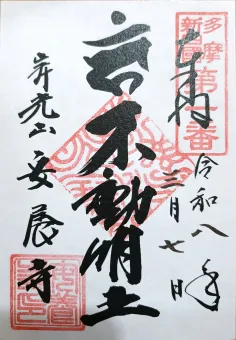 多摩
新四國
第一番
奉拝
令和八年
三月七日
不動明王
光山安養寺